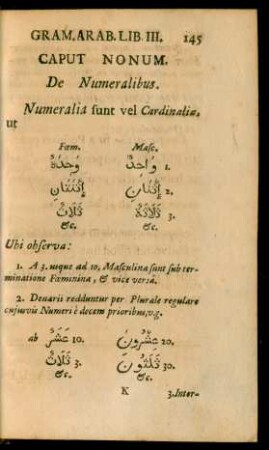 GRAM. ARAB. LIB. III. 145
CAPUT NONUM.
De Numeralibus.
Numeralia sunt vel Cardinalia,
ut
Fœm. Masc.
وَحْدَةٌ وَاحِدٌ 1.
إِثْنَتَانِ إِثْنَانِ 2.
ثَلَاثٌ ثَلَاثَةٌ 3.
&c. &c.
Ubi observa:
1. A 3. usque ad 10, Masculina sunt sub ter-
minatione Fœminina, & vice versa.
2. Denariis redduntur per Plurale regulare
cujusvis Numeri è decem prioribus, v.g.
ab عَشَرٌ 10. عِشْرُونَ 20.
ثَلَاثٌ 3. ثَلَثُونَ 30.
&c. &c.
K 3. Inter-